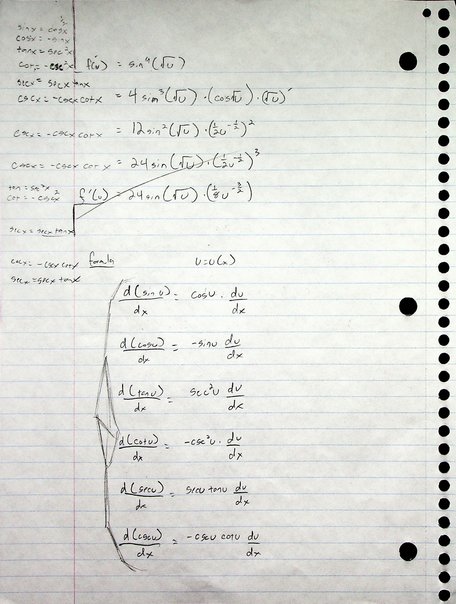 sinx = cosx
cosx = -sinx
tanx = sec²x
cot = -csc²x f'(u) = sin⁴(√u)
secx = secx tanx
cscx = -cscx cotx = 4 sin³(√u) · (cos√u) · (√u)'
cscx = -cscx cotx = 12 sin²(√u) · (½u^-½)²
cscx = -cscx cotx = 24 sin(√u) · (½u^-½)³
tan = sec²x
cot = -cscx² f'(u) = 24 sin(√u) · (⅛u^-3/2)
secx = secx tanx
cscx = -cscx cotx formulas u = u(x)
secx = secx tanx
d(sin u)/dx = cosu · du/dx
d(cosu)/dx = -sinu du/dx
d(tanu)/dx = sec²u du/dx
d(cotu)/dx = -csc²u · du/dx
d(secu)/dx = secu tanu du/dx
d(cscu)/dx = -cscu cotu du/dx